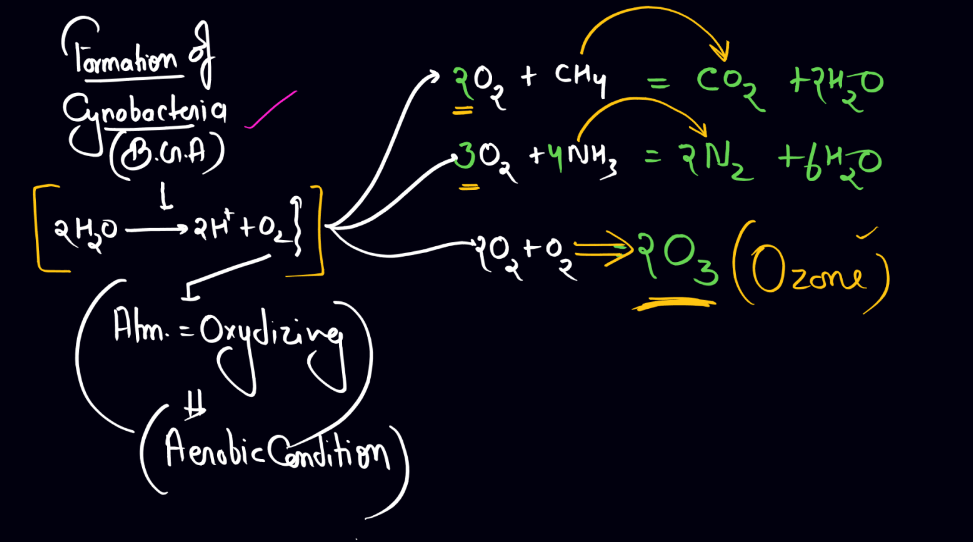 Formation of
Cynobacteria
(B.G.A)
2H2O → 2H+ + O2}
Atm. = Oxydizing
(Aerobic Condition)
2O2 + CH4 = CO2 + 2H2O
3O2 + 4NH3 = 2N2 + 6H2O
2O2 + O2 ⇒ 2O3 (Ozone)